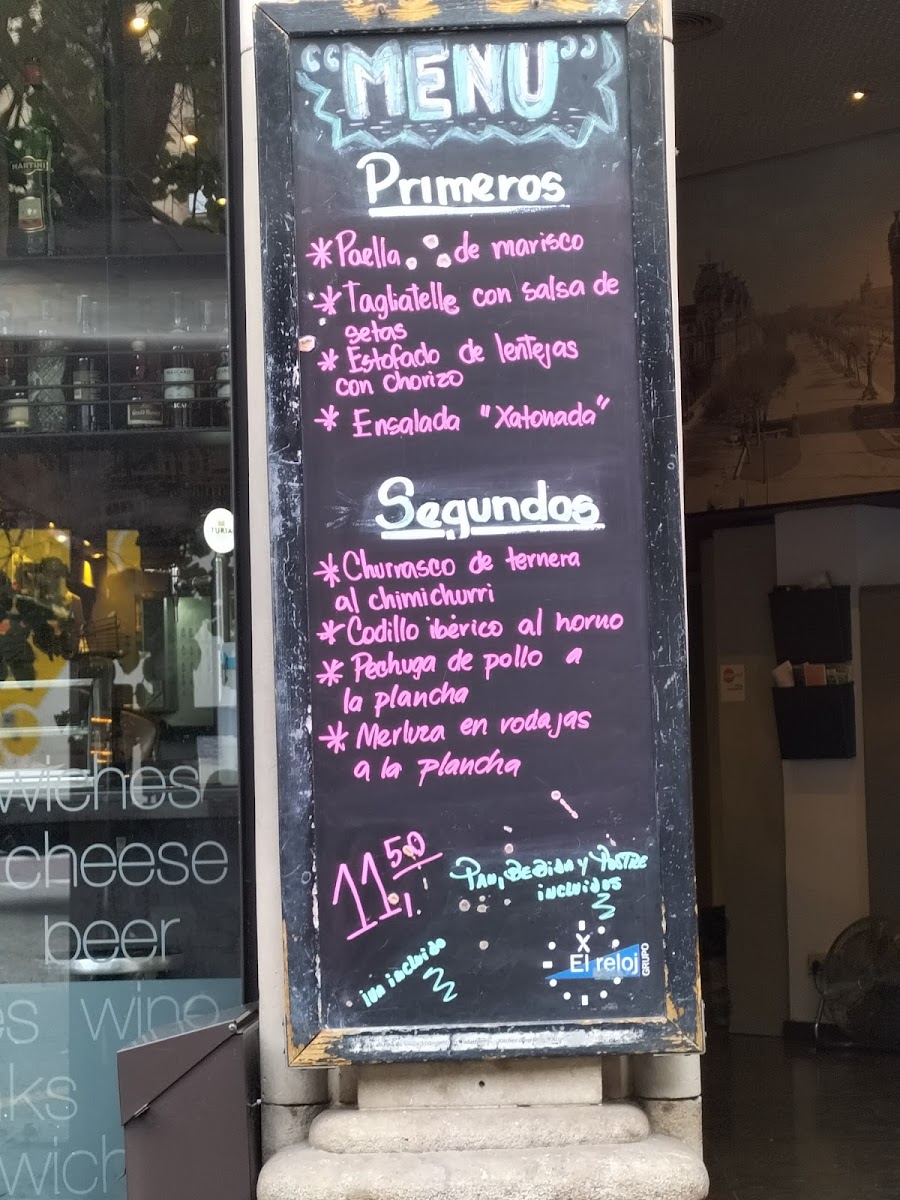 "MENU"
Primeros
* Paella de marisco
* Tagliatelle con salsa de
setas
* Estofado de lentejas
con chorizo
* Ensalada "Xatonada"
Segundos
* Churrasco de ternera
al chimichurri
* Codillo ibérico al horno
* Pechuga de pollo a
la plancha
* Merluza en rodajas
a la plancha
11,50
PAN, BEBIDA Y POSTRE
INCLUIDOS
IVA INCLUIDO
El reloj
GRUPO
MARTINI
TURIA
wiches
cheese
beer
es wine
ks
wich